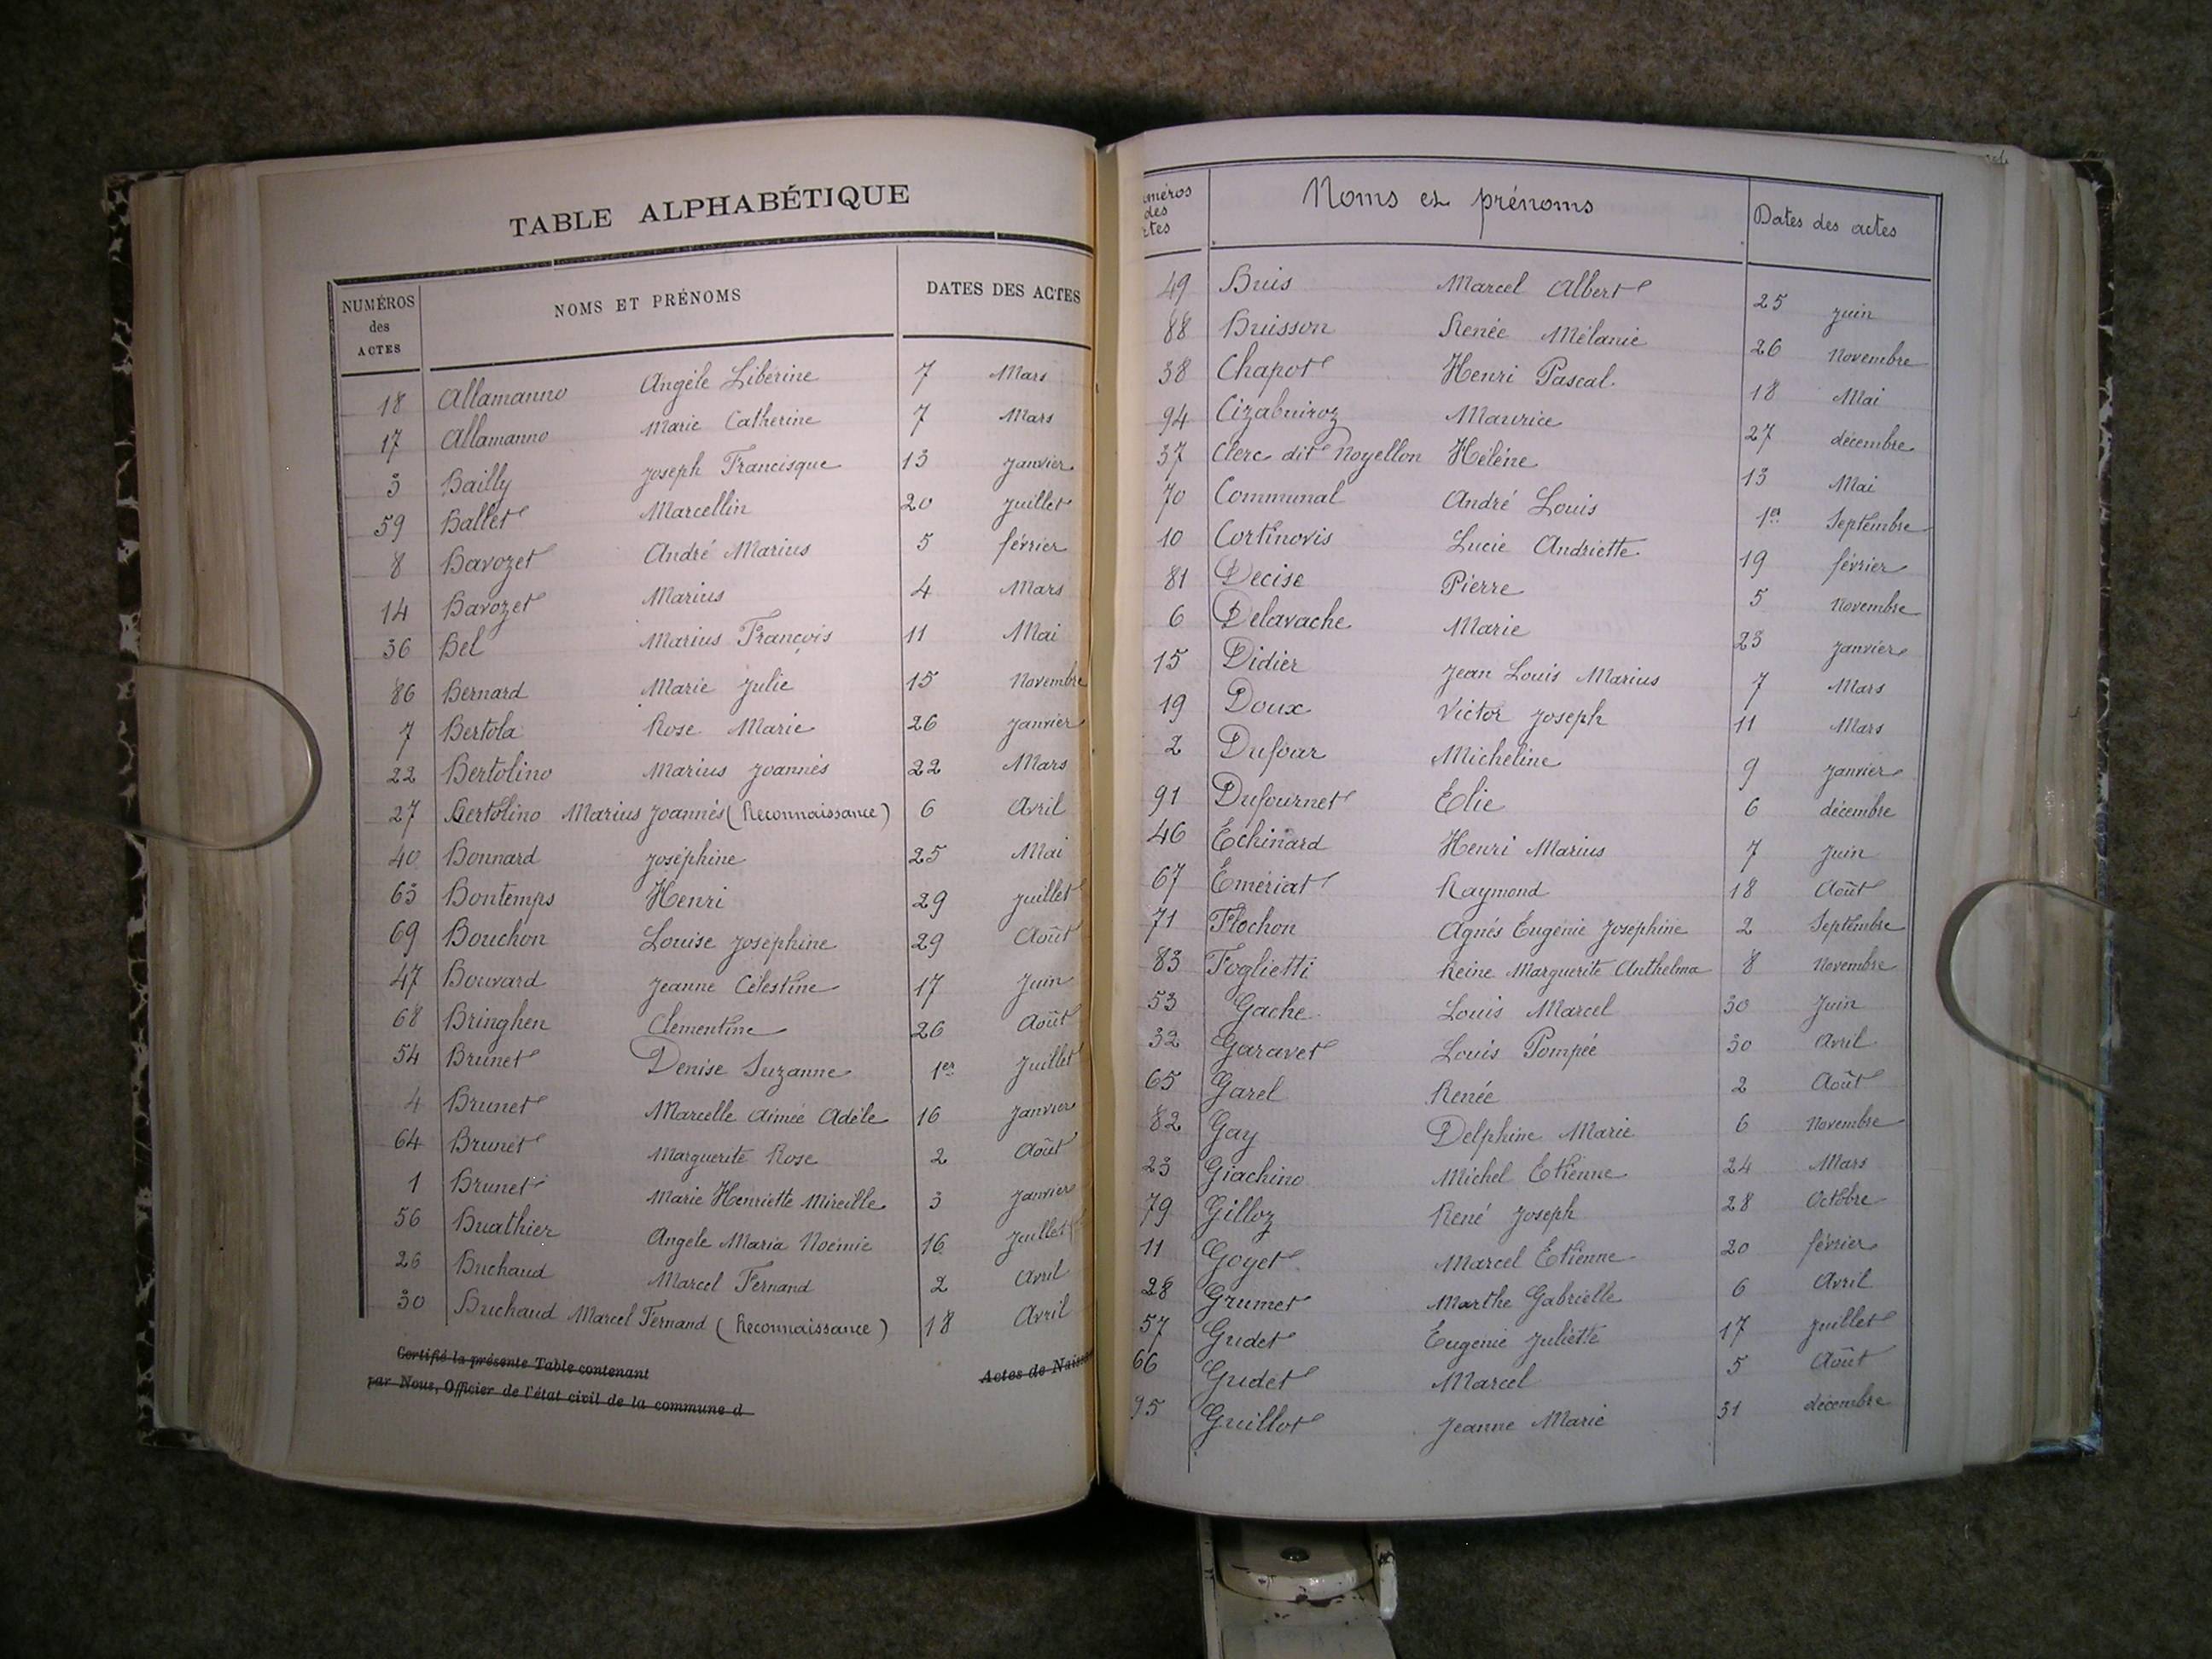 TABLE ALPHABÉTIQUE
NUMÉROS des ACTES NOMS ET PRÉNOMS DATES DES ACTES
18 Allamanno Angèle Libérine 7 Mars
17 Allamanno Marie Catherine 7 Mars
3 Bailly Joseph Francisque 13 Janvier
59 Ballet Marcellin 20 Juillet
8 Bavozet André Marius 5 février
14 Bavozet Marius 4 Mars
36 Bel Marius François 11 Mai
86 Bernard Marie Julie 15 Novembre
7 Bertola Rose Marie 26 Janvier
22 Bertolino Marius Joannès 22 Mars
27 Bertolino Marius Joannès (Reconnaissance) 6 Avril
40 Bonnard Joséphine 25 Mai
63 Bontemps Henri 29 Juillet
69 Bouchon Louise Joséphine 29 Août
47 Bouvard Jeanne Célestine 17 Juin
68 Bringhen Clementine 26 Août
54 Brunet Denise Suzanne 1er Juillet
4 Brunet Marcelle Aimée Adèle 16 Janvier
64 Brunet Marguerite Rose 2 Août
1 Brunet Marie Henriette Mireille 3 Janvier
56 Buathier Angèle Maria Noémie 16 Juillet
26 Buchaud Marcel Fernand 2 Avril
30 Buchaud Marcel Fernand (Reconnaissance) 18 Avril
Certifié la présente Table contenant Actes de
par Nous, Officier de l'état civil de la commune d
des Noms et prénoms Dates des actes
49 Buis Marcel Albert 25 juin
88 Buisson Renée Mélanie 26 Novembre
38 Chapot Henri Pascal 18 Mai
94 Cizabuiroz Maurice 27 décembre
37 Clerc dit Noyellon Hélène 13 Mai
70 Communal André Louis 1er Septembre
10 Cortinovis Lucie Andriette 19 février
81 Decise Pierre 5 Novembre
6 Delavache Marie 23 Janvier
15 Didier Jean Louis Marius 7 Mars
19 Doux Victor Joseph 11 Mars
2 Dufour Micheline 9 Janvier
91 Dufournet Elie 6 décembre
46 Echinard Henri Marius 7 Juin
67 Emériat Raymond 18 Août
71 Flochon Agnès Eugénie Joséphine 2 Septembre
83 Foglietti Reine Marguerite Anthelma 8 Novembre
53 Gache Louis Marcel 30 Juin
32 Garavet Louis Pompée 30 Avril
65 Garel Renée 2 Août
82 Gay Delphine Marie 6 Novembre
23 Giachino Michel Etienne 24 Mars
79 Gilloz René Joseph 28 Octobre
11 Goyet Marcel Etienne 20 février
28 Grumet Marthe Gabrielle 6 Avril
57 Gudet Eugénie Juliette 17 Juillet
66 Gudet Marcel 5 Août
95 Guillot Jeanne Marie 31 décembre